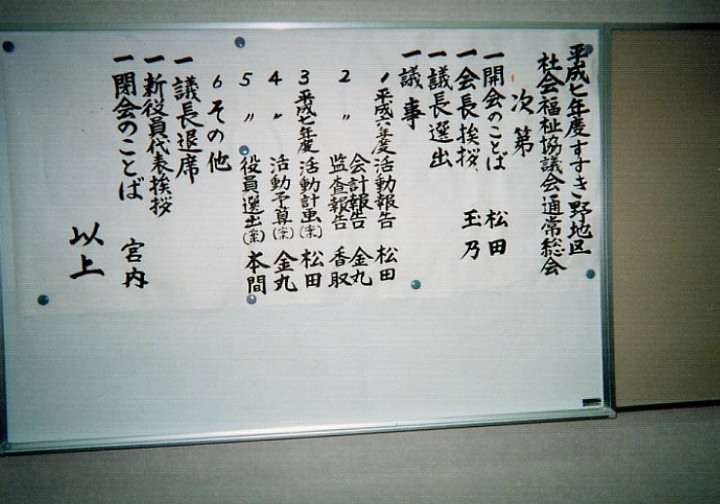 平成七年度すすき野地区
社会福祉協議会通常総会
次第
一開会のことば 松田
一会長挨拶 玉乃
一議長選出
一議事
1平成六年度活動報告 松田
会計報告 金丸
2 〃 監査報告 香取
3平成七年度活動計画(案) 松田
4 〃 活動予算(案) 金丸
5 〃 役員選出(案) 本間
6その他
一議長退席
一新役員代表挨拶
一閉会のことば 宮内
以上